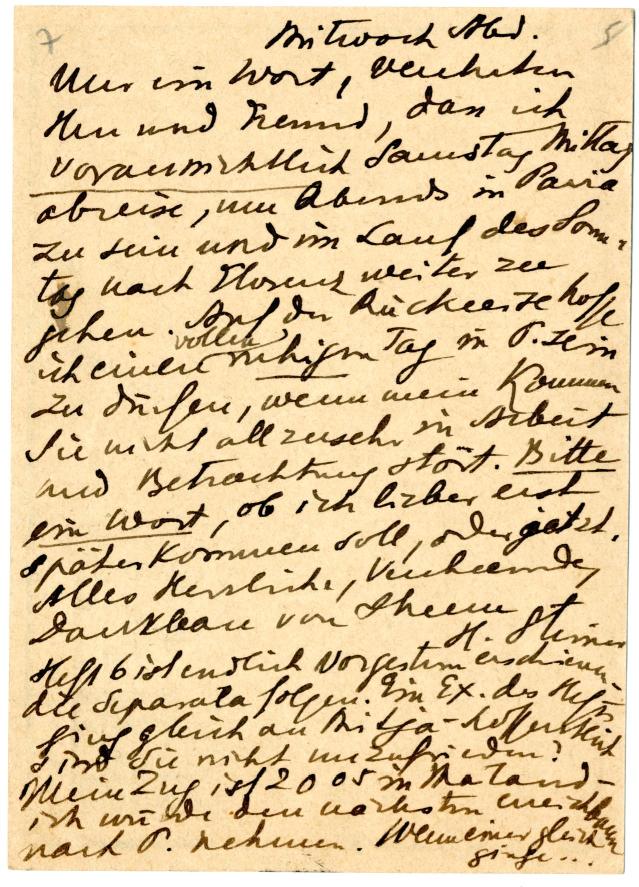 7 5
Mittwoch Abd.
Nur ein Wort, Verehrter
Herr und Freund, dass ich
voraussichtlich Samstag Mittag
abreise, um Abends in Pavia
zu sein und im Lauf des Sonn-
tag nach Florenz weiter zu
gehen. Auf der Rückreise hoffe
ich einen vollen ruhigen Tag in P. sein
zu dürfen, wenn mein Kommen
Sie nicht allzusehr in Arbeit
und Betrachtung stört. Bitte
ein Wort, ob ich lieber erst
später kommen soll, oder jetzt.
Alles Herzliche, Verehrende,
Dankbare von Ihrem
H. Steiner
Heft 6 ist endlich vorgestern erschienen
die Separata folgen. Ein Ex. des Heftes
ging gleich an Mitja -
sind Sie nicht unzufrieden?
Mein Zug ist 20 05 in Mailand -
ich würde den nächsten erreichbaren
nach P. nehmen. Wenn einer gleich
ginge...